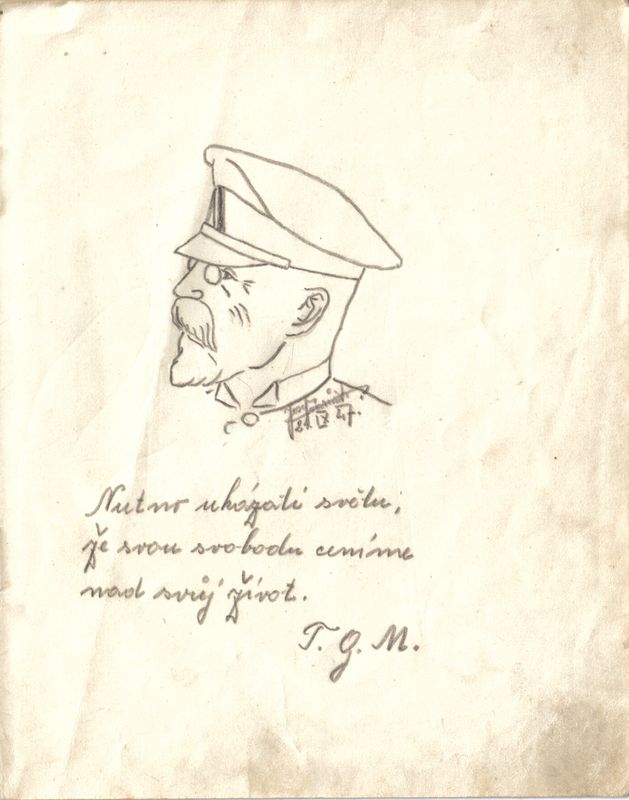 Josef
21. IX. 47.
Nutno ukázati světu,
že svou svobodu ceníme
nad svůj život.
T. G. M.